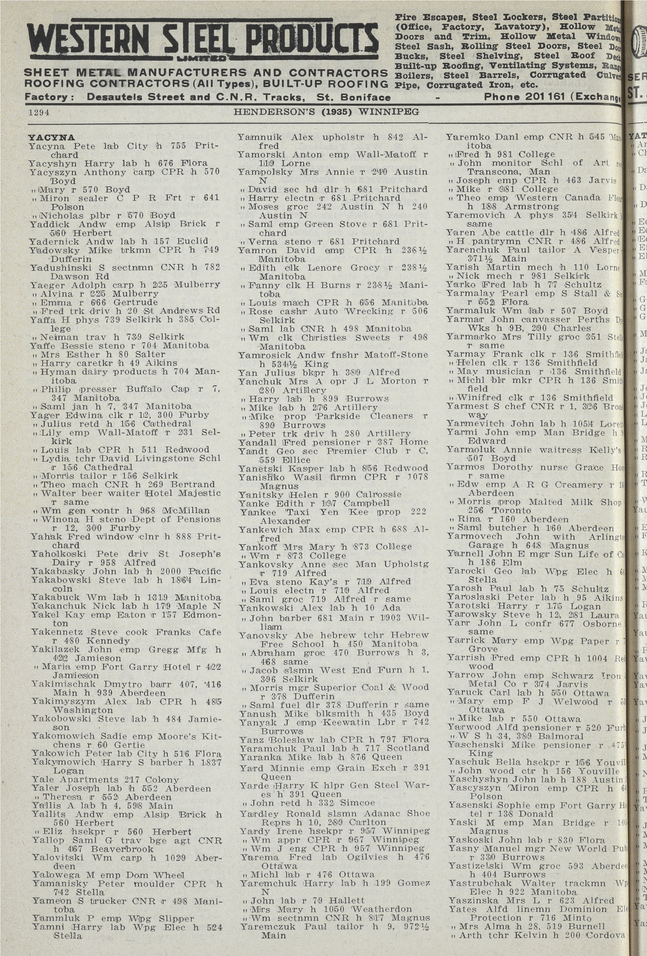 WESTERN STEEL PRODUCTS
LIMITED
SHEET METAL MANUFACTURERS AND CONTRACTORS
ROOFING CONTRACTORS (All Types), BUILT-UP ROOFING
Factory: Desautels Street and C.N.R. Tracks, St. Boniface - Phone 201 161 (Exchange
Fire Escapes, Steel Lockers, Steel
(Office, Factory, Lavatory), Hollow
Doors and Trim, Hollow Metal
Steel Sash, Rolling Steel Doors, Steel
Bucks, Steel Shelving, Steel Roof
Built-up Roofing, Ventilating Systems,
Boilers, Steel Barrels, Corrugated
Pipe, Corrugated Iron, etc.
1294
HENDERSON'S (1935) WINNIPEG
YACYNA
Yacyna Pete lab City h 755 Prit-
chard
Yacyshyn Harry lab h 676 Flora
Yacyszyn Anthony carp CPR h 570
Boyd
" Mary r 570 Boyd
" Miron sealer C P R Frt r 641
Polson
" Nicholas plbr r 570 Boyd
Yaddick Andw emp Alsip Brick r
560 Herbert
Yadernick Andw lab h 157 Euclid
Yadowsky Mike trkmn CPR h 749
Dufferin
Yadushinski S sectnmn CNR h 782
Dawson Rd
Yaeger Adolph carp h 225 Mulberry
" Alvina r 225 Mulberry
" Emma r 666 Gertrude
" Fred trk driv h 20 St Andrews Rd
Yaffa H phys 739 Selkirk h 385 Col-
lege
" Neiman trav h 739 Selkirk
Yaffe Bessie steno r 704 Manitoba
" Mrs Esther h 80 Salter
" Harry caretkr h 49 Aikins
" Hyman dairy products h 704 Man-
itoba
" Philip presser Buffalo Cap r 7,
347 Manitoba
" Saml jan h 7, 347 Manitoba
Yager Edwina clk r 12, 300 Furby
" Julius retd h 156 Cathedral
" Lily emp Wall-Matoff r 231 Sel-
kirk
" Louis lab CPR h 511 Redwood
" Lydia tchr David Livingstone Schl
r 156 Cathedral
" Morris tailor r 156 Selkirk
" Theo mach CNR h 269 Bertrand
" Walter beer waiter Hotel Majestic
r same
" Wm gen contr h 968 McMillan
" Winona H steno Dept of Pensions
r 12, 300 Furby
Yahak Fred window clnr h 888 Prit-
chard
Yaholkoski Pete driv St Joseph's
Dairy r 958 Alfred
Yakabasky John lab h 2000 Pacific
Yakabowski Steve lab h 1864 Lin-
coln
Yakabuck Wm lab h 1319 Manitoba
Yakanchuk Nick lab h 179 Maple N
Yakel Kay emp Eaton r 157 Edmon-
ton
Yakennetz Steve cook Franks Cafe
r 480 Kennedy
Yakilazek John emp Gregg Mfg h
422 Jamieson
" Maria emp Fort Garry Hotel r 422
Jamieson
Yakimischak Dmytro barr 407, 416
Main h 939 Aberdeen
Yakimyszym Alex lab CPR h 485
Washington
Yakobowski Steve lab h 484 Jamie-
son
Yakomowich Sadie emp Moore's Kit-
chens r 60 Gertie
Yakowich Peter lab City h 516 Flora
Yakymowich Harry S barber h 1837
Logan
Yale Apartments 217 Colony
Yaler Joseph lab h 552 Aberdeen
" Theresa r 552 Aberdeen
Yallis A lab h 4, 598 Main
Yallits Andw emp Alsip Brick h
560 Herbert
" Eliz hsekpr r 560 Herbert
Yallop Saml G trav bge agt CNR
h 467 Beaverbrook
Yalovitski Wm carp h 1029 Aber-
deen
Yalowega M emp Dom Wheel
Yamanisky Peter moulder CPR h
742 Stella
Yameon S trucker CNR r 498 Mani-
toba
Yammluk P emp Wpg Slipper
Yamni Harry lab Wpg Elec h 524
Stella
Yamnuik Alex upholstr h 842 Al-
fred
Yamorski Anton emp Wall-Matoff r
119 Lorne
Yampolsky Mrs Annie r 240 Austin
N
" David sec hd dlr h 681 Pritchard
" Harry electn r 681 Pritchard
" Moses groc 242 Austin N h 240
Austin N
" Saml emp Green Stove r 681 Prit-
chard
" Verna steno r 681 Pritchard
Yamron David emp CPR h 236½
Manitoba
" Edith clk Lenore Grocy r 238½
Manitoba
" Fanny clk H Burns r 238½ Mani-
toba
" Louis mach CPR h 656 Manitoba
" Rose cashr Auto Wrecking r 506
Selkirk
" Saml lab CNR h 498 Manitoba
" Wm clk Christies Sweets r 498
Manitoba
Yamrosick Andw fnshr Matoff-Stone
h 534½ King
Yan Julius bkpr h 389 Alfred
Yanchuk Mrs A opr J L Morton r
280 Artillery
" Harry lab h 899 Burrows
" Mike lab h 276 Artillery
" Mike prop Parkside Cleaners r
899 Burrows
" Peter trk driv h 280 Artillery
Yandall Fred pensioner r 387 Home
Yandt Geo sec Premier Club r C.
559 Ellice
Yanetski Kasper lab h 856 Redwood
Yanishko Wasil firmn CPR r 1078
Magnus
Yanitsky Helen r 900 Calrossie
Yanke Edith r 197 Campbell
Yankee Taxi Yen Kee prop 222
Alexander
Yankewich Max emp CPR h 688 Al-
fred
Yankoff Mrs Mary h 873 College
" Wm r 873 College
Yankovsky Anne sec Man Upholstg
r 719 Alfred
" Eva steno Kay's r 719 Alfred
" Louis electn r 719 Alfred
" Saml groc 719 Alfred r same
Yankowski Alex lab h 10 Ada
" John barber 681 Main r 1903 Wil-
liam
Yanovsky Abe hebrew tchr Hebrew
Free School h 450 Manitoba
" Abraham groc 470 Burrows h 3,
468 same
" Jacob slsmn West End Furn h 1,
396 Selkirk
" Morris mgr Superior Coal & Wood
r 378 Dufferin
" Saml fuel dlr 378 Dufferin r same
Yanush Mike blksmith h 435 Boyd
Yanyak J emp Keewatin Lbr r 742
Burrows
Yanz Boleslaw lab CPR h 797 Flora
Yaramchuk Paul lab h 717 Scotland
Yaranka Mike lab h 876 Queen
Yard Minnie emp Grain Exch r 391
Queen
Yarde Harry K hlpr Gen Steel War-
es h 391 Queen
" John retd h 332 Simcoe
Yardley Ronald slsmn Adanac Shoe
Reprs h 10, 289 Carlton
Yardy Irene hsekpr r 957 Winnipeg
" Wm appr CPR r 967 Winnipeg
" Wm J eng CPR h 957 Winnipeg
Yarema Fred lab Ogilvies h 476
Ottawa
" Michl lab r 476 Ottawa
Yaremchuk Harry lab h 199 Gomez
N
" John lab r 79 Hallett
" Mrs Mary h 1050 Weatherdon
" Wm sectnmn CNR h 817 Magnus
Yaremczuk Paul tailor h 9, 972½
Main
Yaremko Danl emp CNR h 545
itoba
" Fred h 981 College
" John monitor Schl of Art
Transcona, Man
" Joseph emp CPR h 463 Jarvis
" Mike r 981 College
" Theo emp Western Canada
h 188 Armstrong
Yaremovich A phys 354 Selkirk
same
Yaren Abe cattle dlr h 486 Alfred
" H pantrymn CNR r 486 Alfred
Yarenchuk Paul tailor A Vesper
371½ Main
Yarish Martin mech h 110 Lorne
" Nick mech r 981 Selkirk
Yarko Fred lab h 77 Schultz
Yarmalay Pearl emp S Stall &
r 552 Flora
Yarmaluk Wm lab r 507 Boyd
Yarmar John canvasser Perths
Wks h 9B, 290 Charles
Yarmarko Mrs Tilly groc 351
r same
Yarmay Frank clk r 136 Smithfield
" Helen clk r 136 Smithfield
" May musician r 136 Smithfield
" Michl blr mkr CPR h 136
field
" Winifred clk r 136 Smithfield
Yarmest S chef CNR r 1, 326
way
Yarmevitch John lab h 1054
Yarmi John emp Man Bridge h
Edward
Yarmoluk Annie waitress Kelly's
507 Boyd
Yarmos Dorothy nurse Grace
r same
" Edw emp A R G Creamery r
Aberdeen
" Morris prop Malted Milk Shop
256 Toronto
" Rina r 160 Aberdeen
" Saml butcher h 160 Aberdeen
Yarmovech John with
Garage h 648 Magnus
Yarnell John E mgr Sun Life of
h 186 Elm
Yarocki Geo lab Wpg Elec h
Stella
Yarosh Paul lab h 75 Schultz
Yaroslaski Peter lab h 95 Aikins
Yarotski Harry r 175 Logan
Yarowsky Steve h 12, 281 Laura
Yarr John L confr 677 Osborne
same
Yarrick Mary emp Wpg Paper r
Grove
Yarrish Fred emp CPR h 1004
wood
Yarrow John emp Schwarz Iron
Metal Co r 374 Jarvis
Yaruck Carl lab h 550 Ottawa
" Mary emp F J Welwood r
Ottawa
" Mike lab r 550 Ottawa
Yarwood Alfd pensioner r 520
" W S h 34, 389 Balmoral
Yaschenski Mike pensioner r 475
King
Yaschuk Bella hsekpr r 156
" John wood ctr h 156 Youville
Yaschyshyn John lab h 188 Austin
Yascyszyn Miron emp CPR h
Polson
Yasenski Sophie emp Fort Garry
tel r 138 Donald
Yaski M emp Man Bridge r
Magnus
Yaskoski John lab r 830 Flora
Yasny Manuel mgr New World
r 330 Burrows
Yastizelski Wm groc 593
h 404 Burrows
Yastrubchak Walter trackmn
Elec h 922 Manitoba
Yaszinska Mrs L r 623 Alfred
Yates Alfd linemn Dominion
Protection r 716 Minto
" Mrs Alma h 28, 519 Burnell
" Arth tchr Kelvin h 200